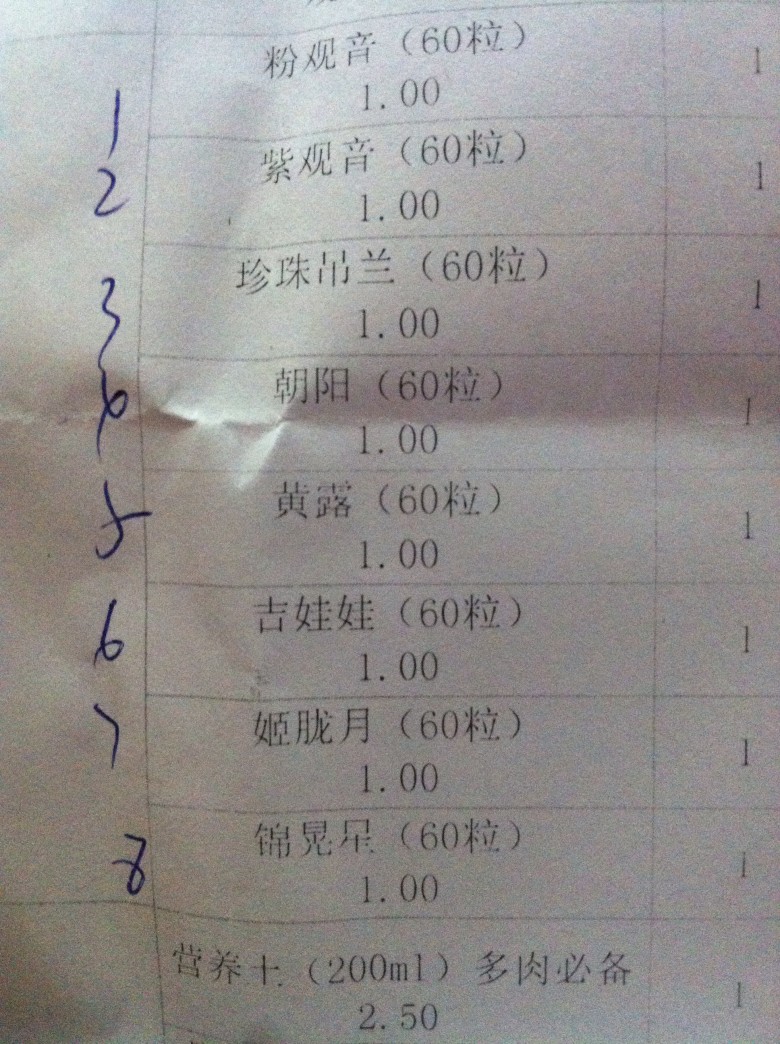 粉观音（60粒） 1
1.00
1
紫观音（60粒） 1
1.00
2
珍珠吊兰（60粒） 1
1.00
3
朝阳（60粒） 1
1.00
黄露（60粒） 1
1.00
5
吉娃娃（60粒） 1
1.00
6
姬胧月（60粒） 1
1.00
7
锦晃星（60粒） 1
1.00
8
营养土（200ml）多肉必备 1
2.50